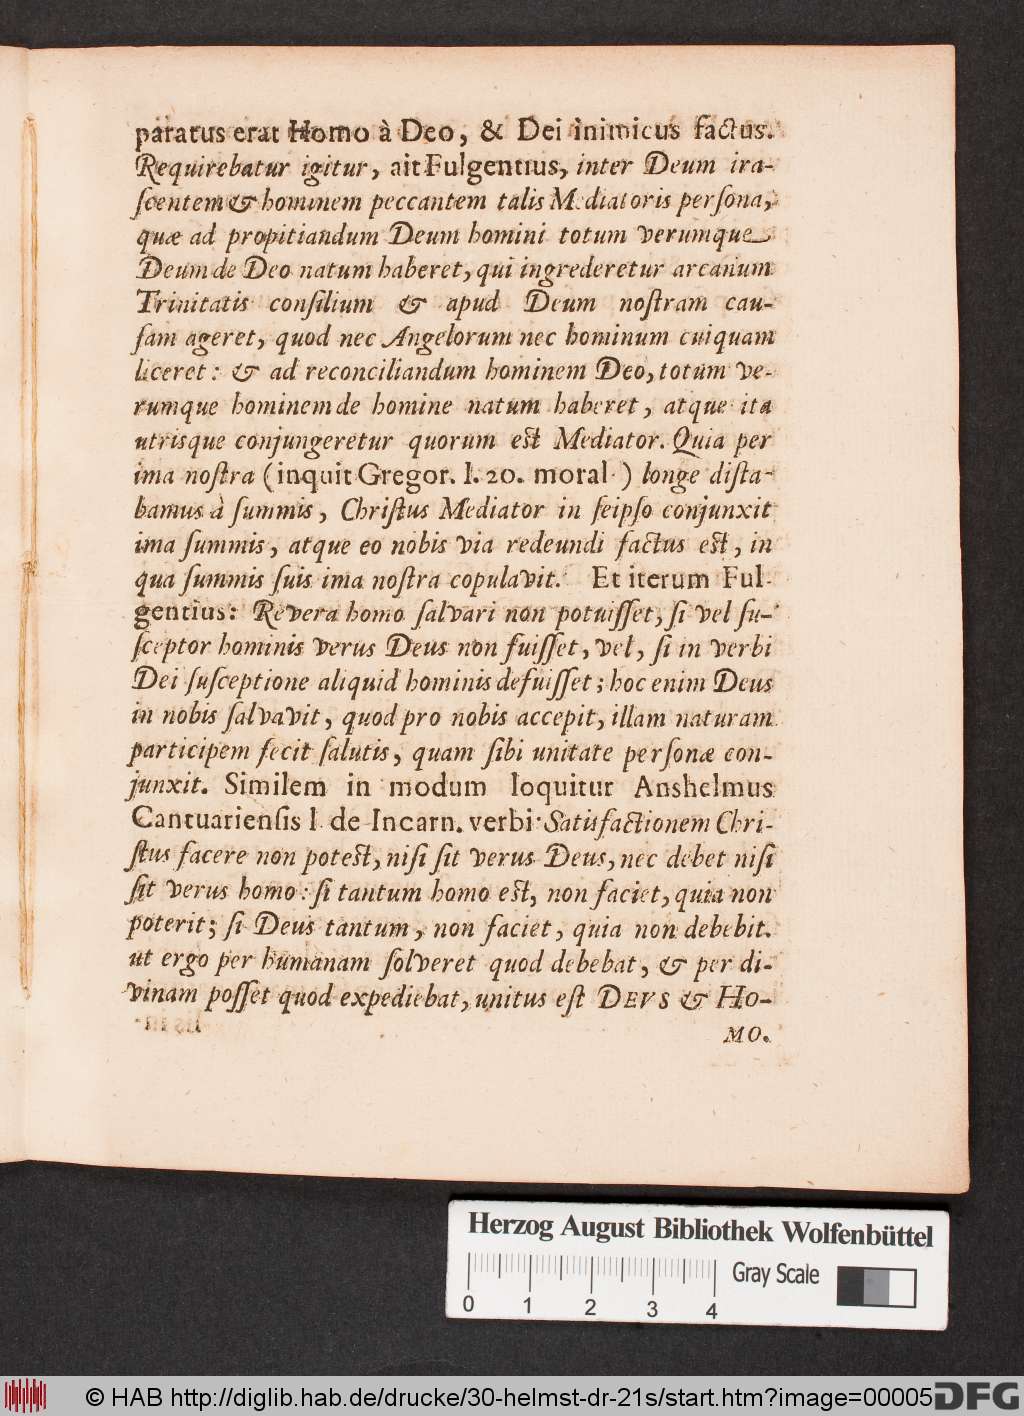 paratus erat Homo à Deo, & Dei inimicus factus.
Requirebatur igitur, ait Fulgentius, inter Deum ira-
ſcentem & hominem peccantem talis Mediatoris perſona,
quæ ad propitiandum Deum homini totum verumque
Deum de Deo natum haberet, qui ingrederetur arcanum
Trinitatis conſilium & apud Deum noſtram cau-
ſam ageret, quod nec Angelorum nec hominum cuiquam
liceret: & ad reconciliandum hominem Deo, totum ve-
rumque hominem de homine natum haberet, atque ita
utrisque conjungeretur quorum est Mediator. Quia per
ima noſtra (inquit Gregor. l. 20. moral.) longe diſta-
bamus à ſummis, Chriſtus Mediator in ſeipſo conjunxit
ima ſummis, atque eo nobis via redeundi factus est, in
qua ſummis ſuis ima noſtra copulavit. Et iterum Ful-
gentius: Revera homo ſalvari non potuiſſet, ſi vel ſu-
ſceptor hominis verus Deus non fuiſſet, vel, ſi in verbi
Dei ſuſceptione aliquid hominis defuiſſet; hoc enim Deus
in nobis ſalvavit, quod pro nobis accepit, illam naturam
participem fecit ſalutis, quam ſibi unitate perſonæ con-
junxit. Similem in modum loquitur Anshelmus
Cantuarienſis l. de Incarn. verbi: Satisfactionem Chri-
ſtus facere non potest, niſi ſit verus Deus, nec debet niſi
ſit verus homo: ſi tantum homo est, non faciet, quia non
poterit; ſi Deus tantum, non faciet, quia non debebit.
ut ergo per humanam ſolveret quod debebat, & per di-
vinam poſſet quod expediebat, unitus eſt DEVS & HO-
MO.
Herzog August Bibliothek Wolfenbüttel
Gray Scale
0 1 2 3 4
© HAB http://diglib.hab.de/drucke/30-helmst-dr-21s/start.htm?image=00005
DFG